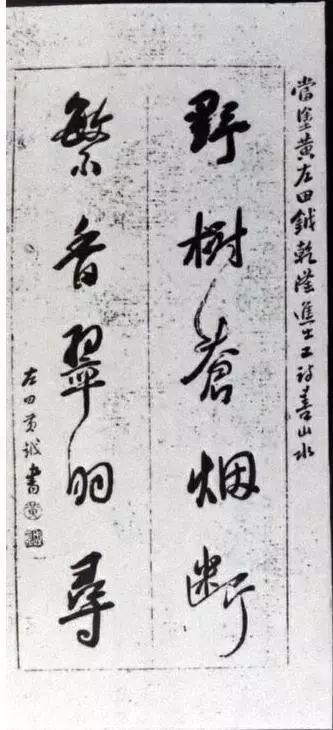 當塗黃左田鉞乾隆進士工詩善山水
野樹蒼烟斷
繁香翠羽尋
左田黃鉞書
黃